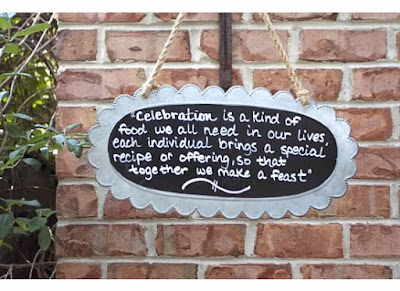 "Celebration is a kind of
food we all need in our lives,
each individual brings a special
recipe or offering, so that
together we make a feast"